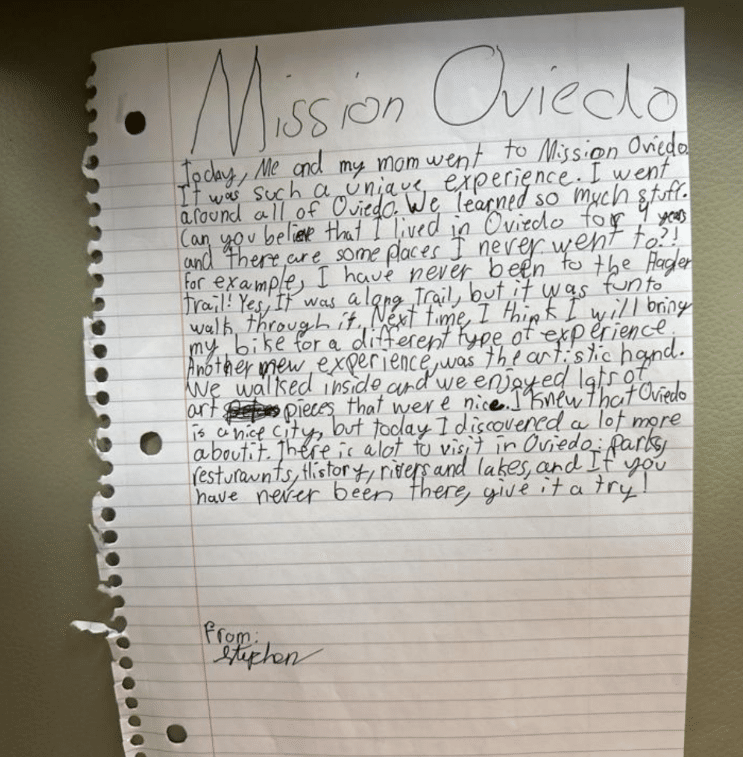 Mission Oviedo
Today, Me and my mom went to Mission Oviedo.
It was such a unique experience. I went
around all of Oviedo. We learned so much stuff.
Can you belive that I lived in Oviedo for 4 years
and there are some places I never went to?!
For example, I have never been to the Hagler
trail! Yes, It was a long trail, but it was fun to
walk through it. Next time, I think I will bring
my bike for a different type of experience.
Another new experience, was the artistic hand.
We walked inside and we enjoyed lots of
art pieces that were nice. I knew that Oviedo
is a nice city, but today I discovered a lot more
about it. There is alot to visit in Oviedo: parks,
resturaunts, History, rivers and lakes, and If you
have never been there, give it a try!
From:
Stephen